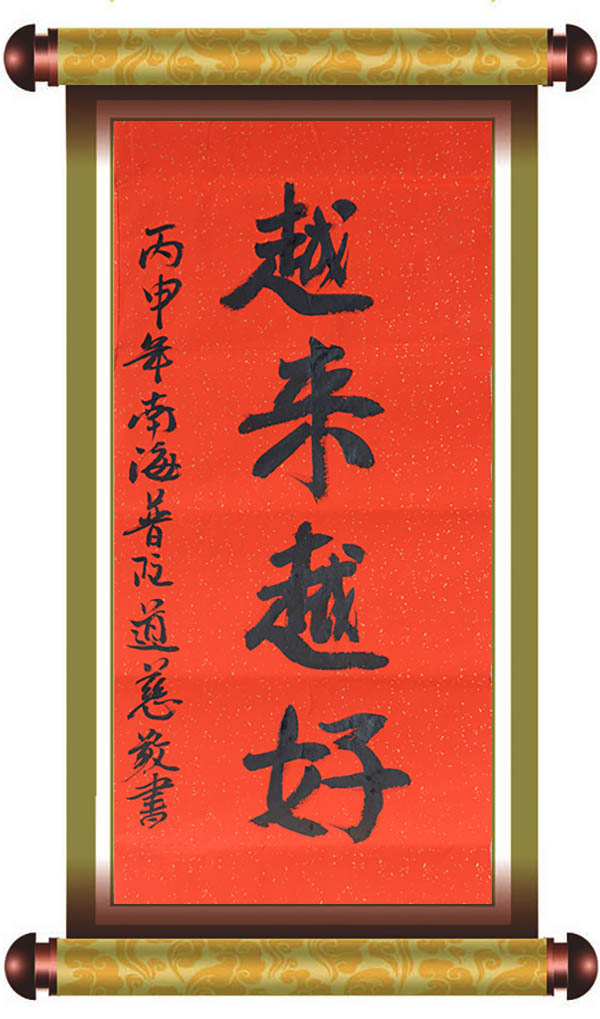 越来越好
丙申年南海普陀道慈敬书